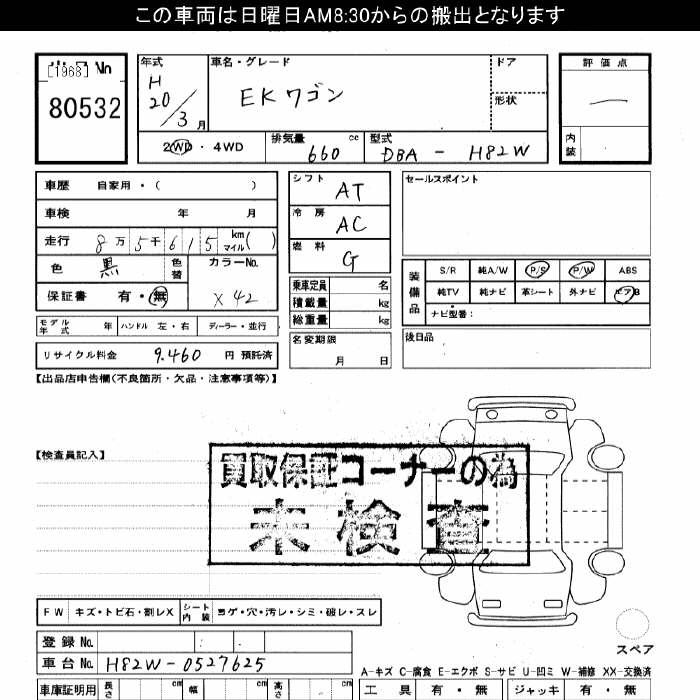 この車両は日曜日AM8:30からの搬出となります
[1968]
80532
年式 H 20/3 月
車名・グレード EKワゴン
ドア
形状
評価点
内装
2WD・4WD
排気量 660 cc
型式 DBA - H82W
車歴 自家用・( )
車検 年 月
走行 8万5千615 km マイル( )
色 黒 色替 カラーNo. X42
保証書 有・無
モデル年式 年 ハンドル 左・右 ディーラー・並行
リサイクル料金 9.460 円 預託済
シフト AT
冷房 AC
燃料 G
乗車定員 名
積載量 kg
総重量 kg
名変期限 月 日
セールスポイント
装備品 S/R 純A/W P/S P/W ABS
純TV 純ナビ 革シート 外ナビ エアB
ナビ型番:
後日品
【出品店申告欄(不良箇所・欠品・注意事項等)】
【検査員記入】
買取保証コーナーの為
未検査
FW キズ・トビ石・割レX シート内装 ヨゲ・穴・汚レ・シミ・破レ・スレ
登録No.
車台No. H82W-0527625
スペア
A-キズ C-腐食 E-エクボ S-サビ U-凹ミ W-補修 XX-交換済
車庫証明用 長さ cm 幅 cm 高さ cm
工具 有・無 ジャッキ 有・無